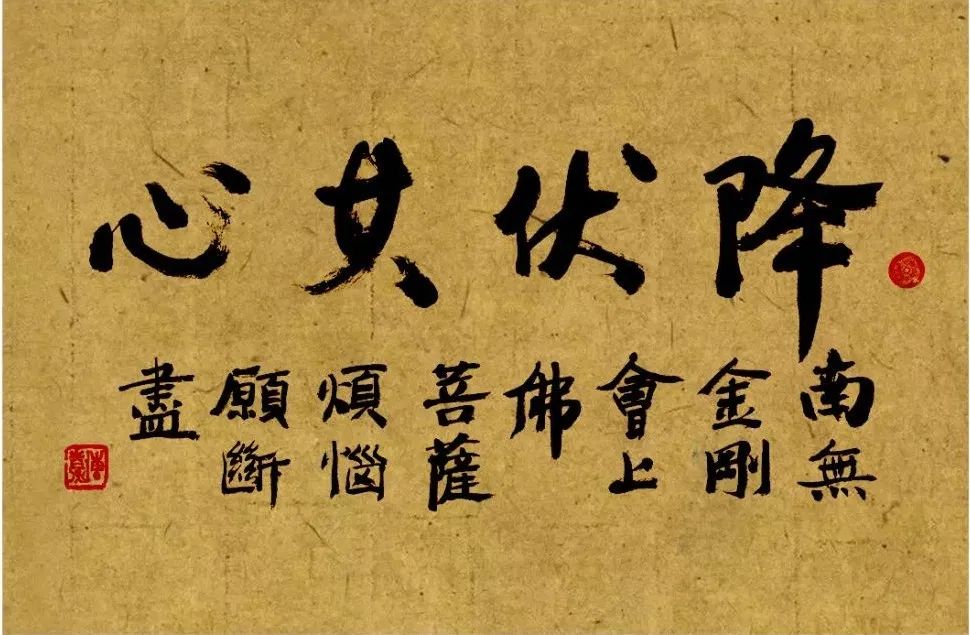 降伏其心
南無
金剛
會上
佛
菩薩
煩惱
願斷
盡